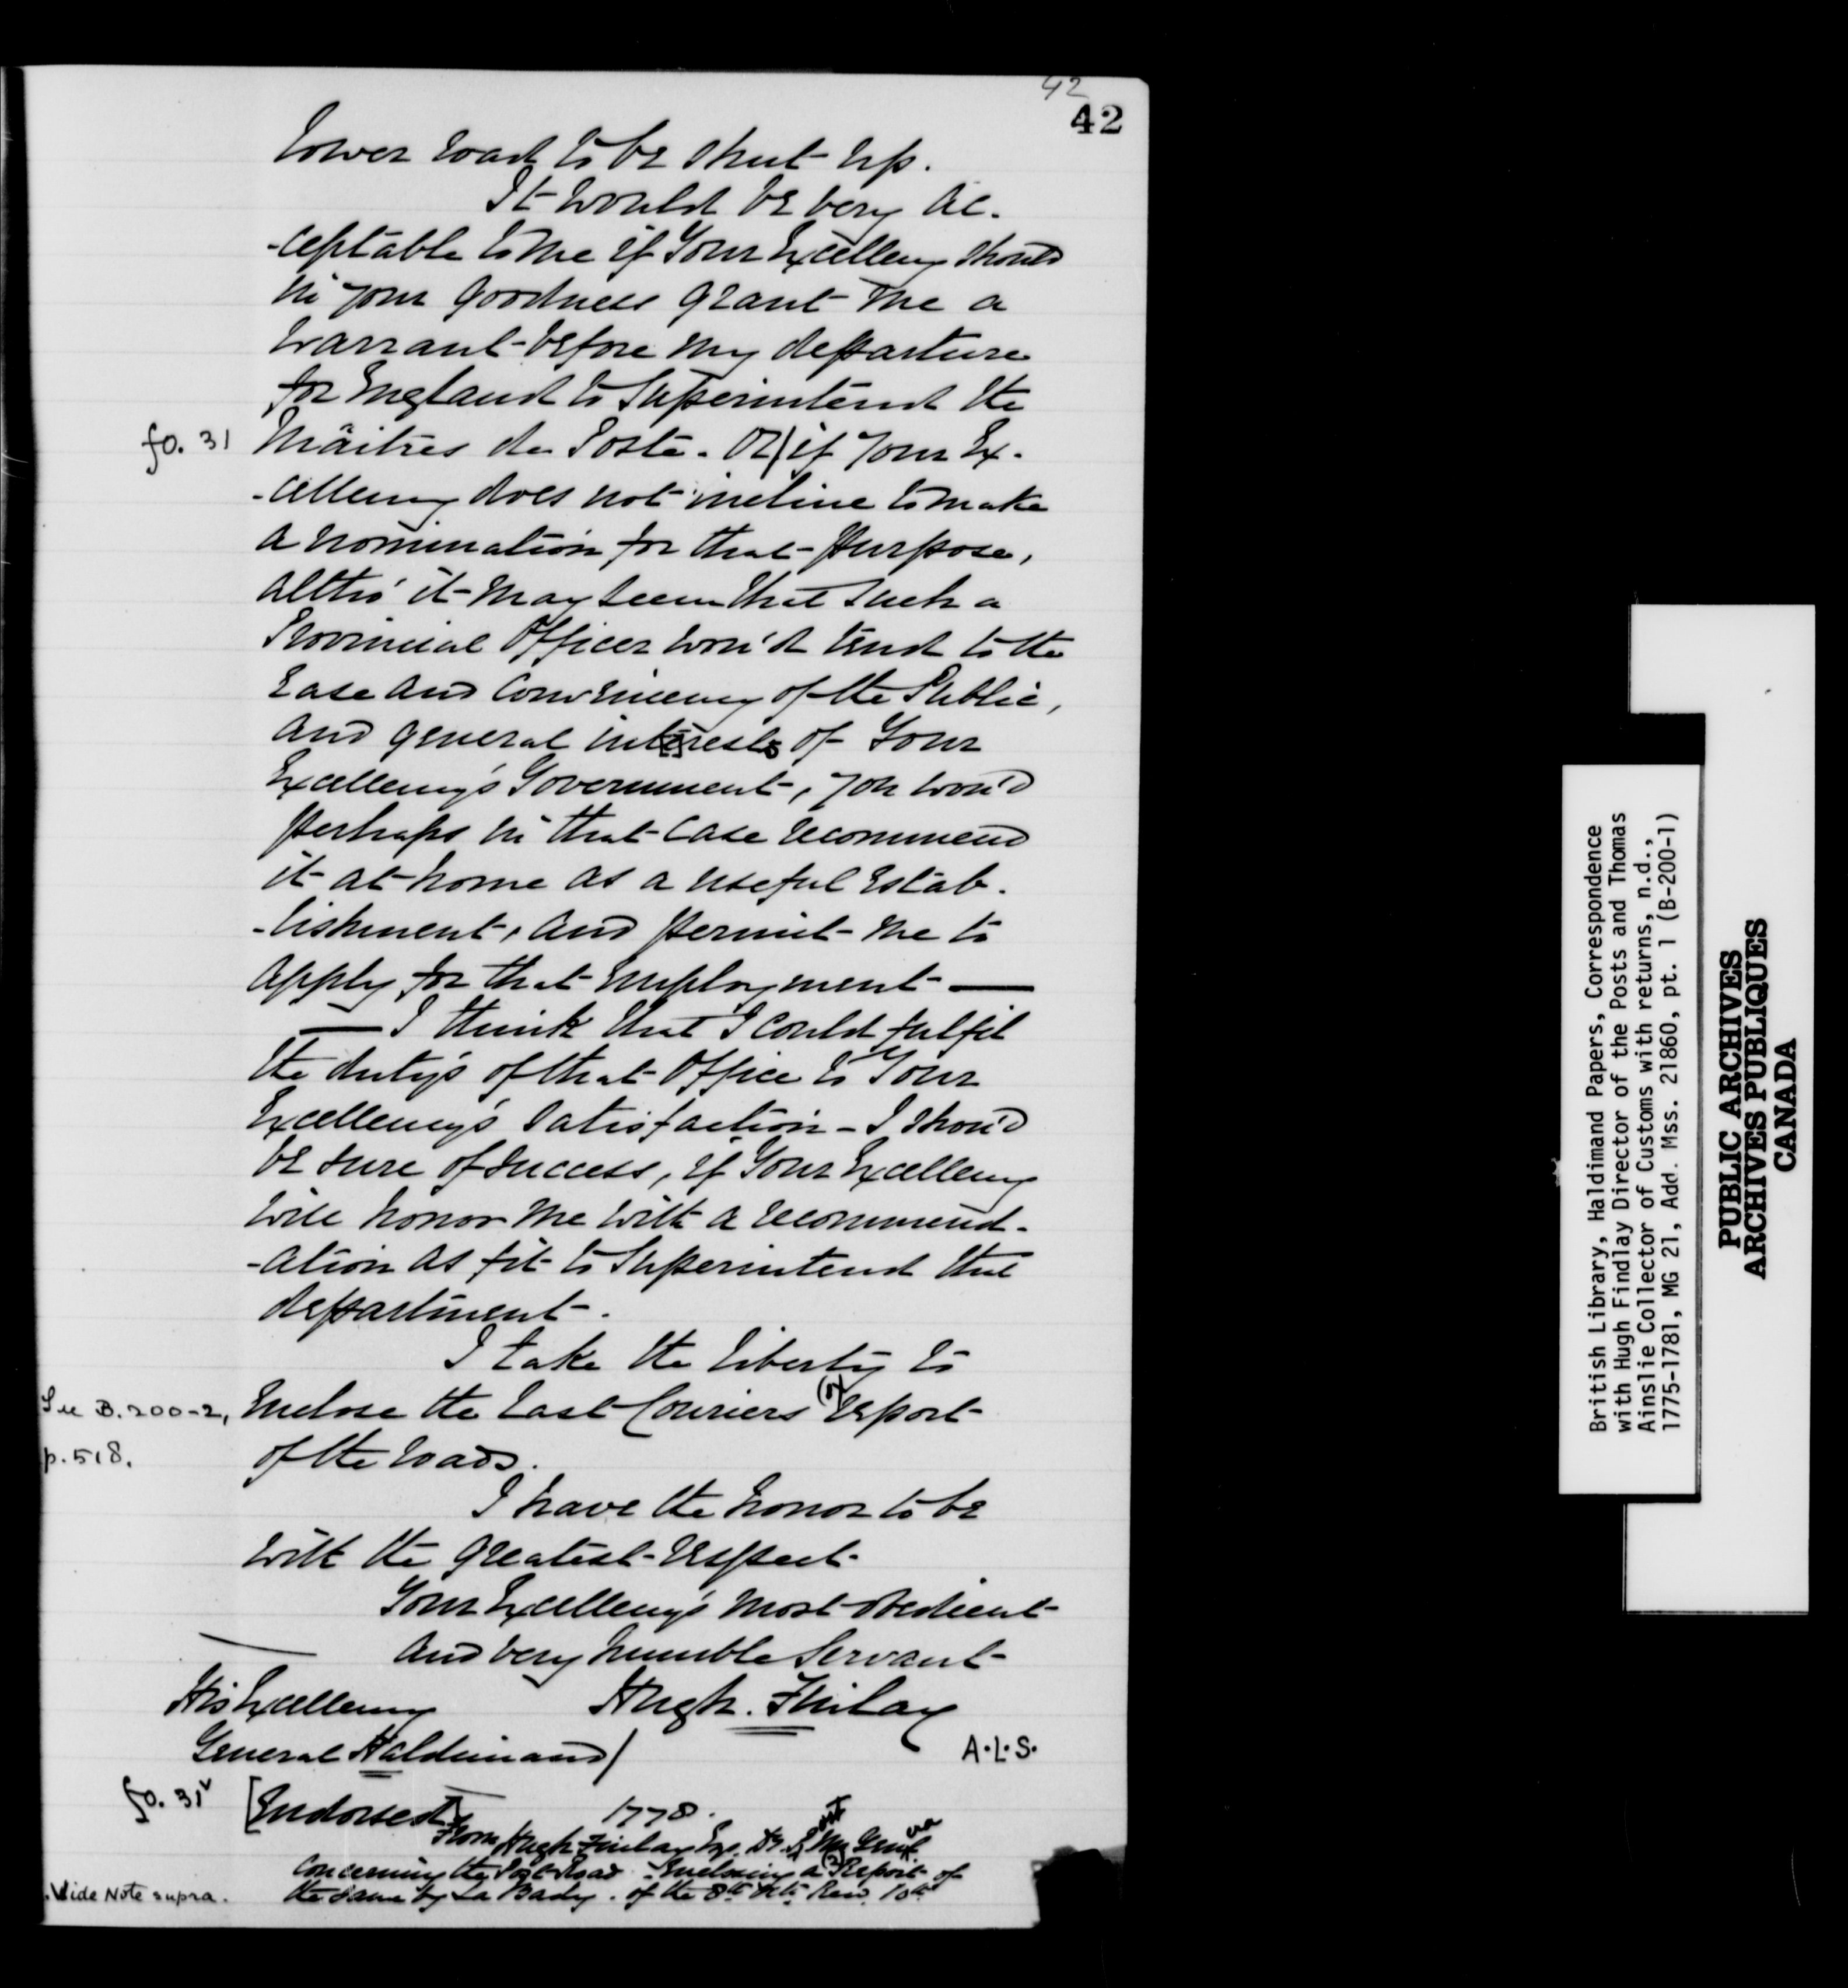 42
42
lower road to be shut up.
It would be very ac-
-ceptable to me if Your Excellency should
in your goodness grant me a
warrant before my departure
for England to Superintend the
fo. 31
Mâitres de Poste. Or | if your Ex-
-cellency does not incline to make
a nomination for that purpose,
altho' it may seem that such a
Provincial Officer wou'd tend to the
Ease and Conveniency of the Public,
and general interests of Your
Excellency's Government, you wou'd
perhaps in that case recommend
it at home as a useful Estab-
-lishment, and permit me to
apply for that Employment —
— I think that I could fulfil
the duty's of that Office to Your
Excellency's Satisfaction - I shou'd
be sure of success, if Your Excellency
will honor me with a recommend-
-ation as fit to Superintend that
department.
I take the liberty to
See B. 200-2,
p. 518.
Enclose the last Couriers Report
of the roads.
I have the honor to be
with the greatest respect
Your Excellency's most obedient
and very humble Servant
His Excellency
Hugh. Finlay
General Haldimand /
A.L.S.
fo. 31v
[Endorsed]
1778.
From Hugh Finlay Esq. Dy. Post Mr. Genl.
Concerning the Post Road - Enclosing a Report of
.Vide Note supra.
the same by La Bady. of the 8th Recd. 10th
British Library, Haldimand Papers, Correspondence
with Hugh Findlay Director of the Posts and Thomas
Ainslie Collector of Customs with returns, n.d.,
1775-1781, MG 21, Add. Mss. 21860, pt. 1 (B-200-1)
PUBLIC ARCHIVES
ARCHIVES PUBLIQUES
CANADA